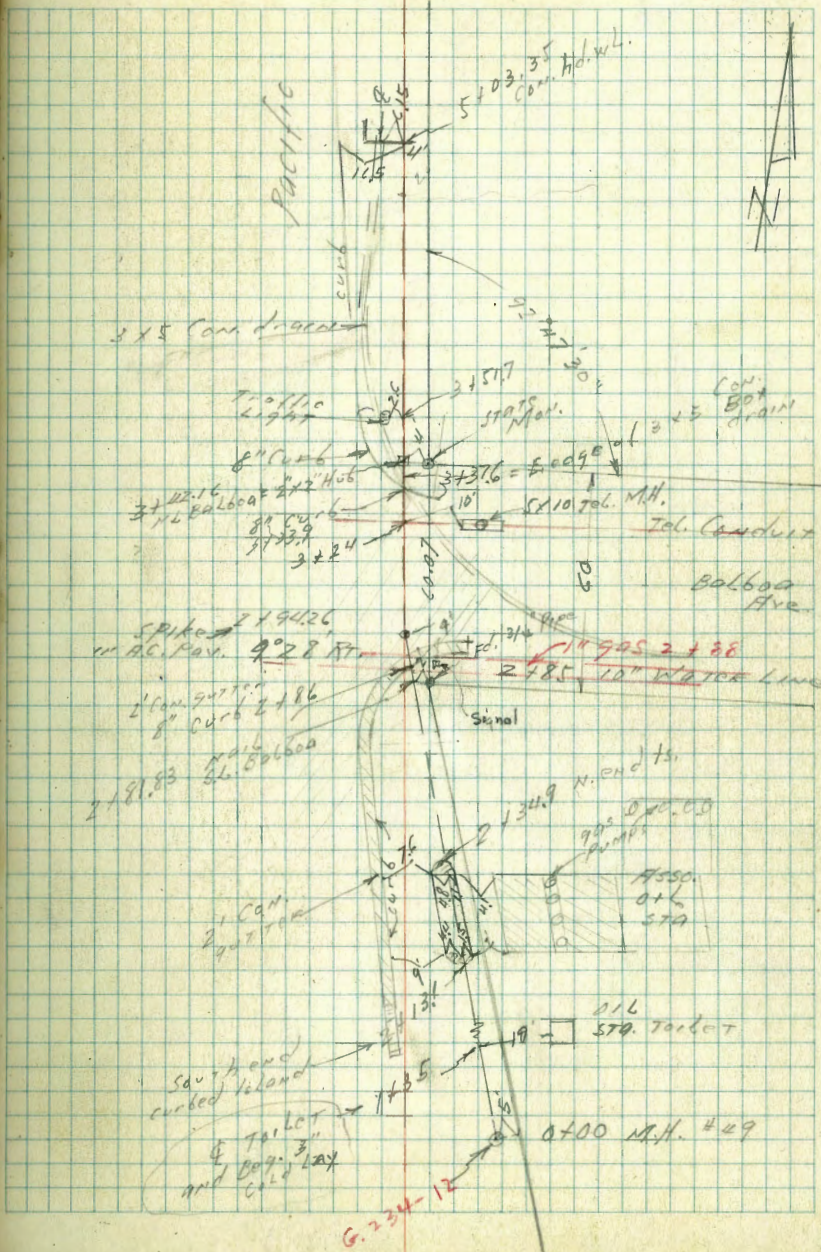 5+03.35
Con. hd. wl.
Pacific
6.15
4'
11.5
2'
curb
N
92°47'30"
3 x 5 Con. drain
Traffic
Light
2.6
3+51.7
State
Mon.
Con.
Box
drain
of 3 x 5
4'
8" Curb
3+37.6 =
3+42.16
NL Balboa = 2"x2" Hub
10'
5x10 Tel. M.H.
8" Curb
3+33.9
3+24
Tel. Conduit
60.07
50
Balboa
Ave.
Spike 2+94.26
in A.C. Pav. 9°28' RT.
9'
1" gas 2+38
2+85 10" Water Line
2' Con. gutter
8" Curb 2+86
Signal
Nail
2+81.83 S.L. Balboa
2+34.9 N. end
gas
pumps
7.6
Asso.
Oil
Sta
curb
2' Con.
gutter
14'
9'
Oil
Sta. Toilet
19'
South end
curbed island
1+35
℄ Toilet
and Beg. 3"
Cold Lay
5'
0+00 M.H. #49
G. 234-12